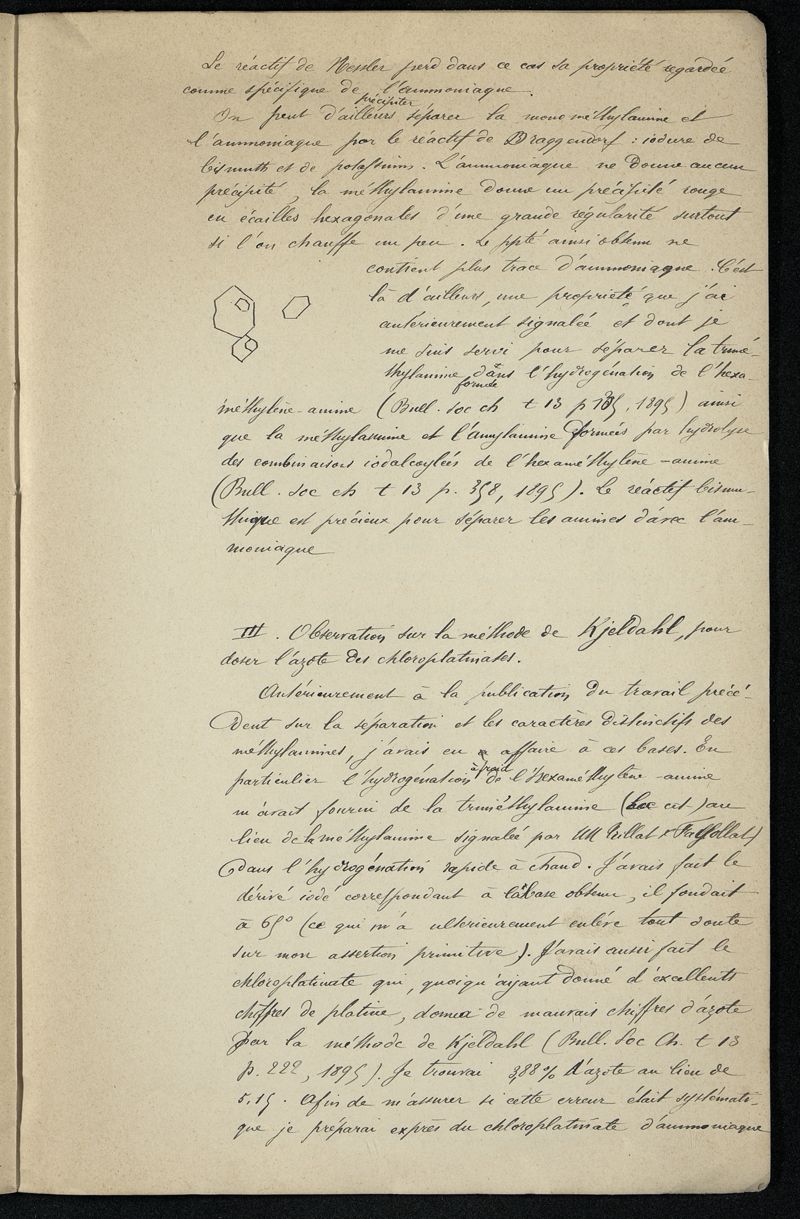 Le réactif de Nessler perd dans ce cas sa propriété regardée
comme spécifique de l'ammoniaque.
précipiter
On peut d'ailleurs séparer la monométhylamine et
l'ammoniaque par le réactif de Draggendorf : iodure de
bismuth et de potassium. L'ammoniaque ne donne aucun
précipité, la méthylamine donne un précipité rouge
en écailles hexagonales d'une grande régularité surtout
si l'on chauffe un peu. Le ppté ainsi obtenu ne
contient plus trace d'ammoniaque. C'est
là d'ailleurs, une propriété que j'ai
antérieurement signalée et dont je
me suis servi pour séparer la trimé-
thylamine dans l'hydrogénation de l'hexa-
formée
méthylène-amine (Bull. Soc ch t 13 p , 1895) ainsi
que la méthylamine et l'amylamine formées par hydrolyse
des combinaisons iodalcoylées de l'hexaméthylène-amine
(Bull. Soc ch t 13 p. 358, 1895). Le réactif bismu-
thique est précieux pour séparer les amines d'avec l'am-
moniaque
III. Observation sur la méthode de Kjeldahl, pour
doser l'azote des chloroplatinates.
Antérieurement à la publication du travail précé-
dent sur la séparation et les caractères distinctifs des
méthylamines, j'avais eu affaire à ces bases. En
à froid
particulier l'hydrogénation de l'hexaméthylène-amine
m'avait fourni de la triméthylamine (loc cit) au
lieu de la méthylamine signalée par MM Trillat & Fayollat)
dans l'hydrogénation rapide à chaud. J'avais fait le
dérivé iodé correspondant à la base obtenue, il fondait
à 65° (ce qui m'a ulterieurement enlevé tout doute
sur mon assertion primitive). J'avais aussi fait le
chloroplatinate qui, quoiqu'ayant donné d'excellents
chiffres de platine, donna de mauvais chiffres d'azote
par la méthode de Kjeldahl (Bull. Soc Ch. t 13
p. 222, 1895). Je trouvai 3,88 % d'azote au lieu de
5,15. Afin de m'assurer si cette erreur était systémati-
que je préparai exprès du chloroplatinate d'ammoniaque